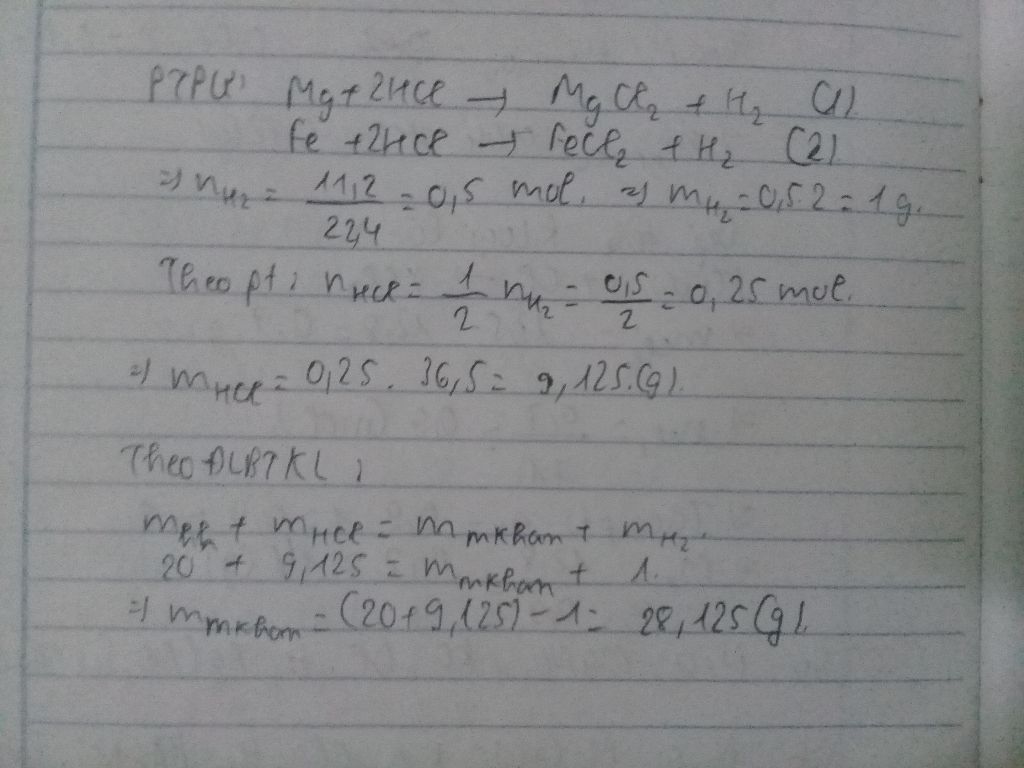 PTPƯ: Mg + 2HCl → MgCl₂ + H₂ (1)
Fe + 2HCl → FeCl₂ + H₂ (2)
=> nH₂ = 11,2 / 22,4 = 0,5 mol. => mH₂ = 0,5.2 = 1g.
Theo pt: nHCl = 1/2 nH₂ = 0,5/2 = 0,25 mol.
=> mHCl = 0,25 . 36,5 = 9,125 (g).
Theo ĐLBTKL:
mhh + mHCl = m mkhan + mH₂.
20 + 9,125 = m mkhan + 1.
=> m mkhan = (20 + 9,125) - 1 = 28,125 (g).